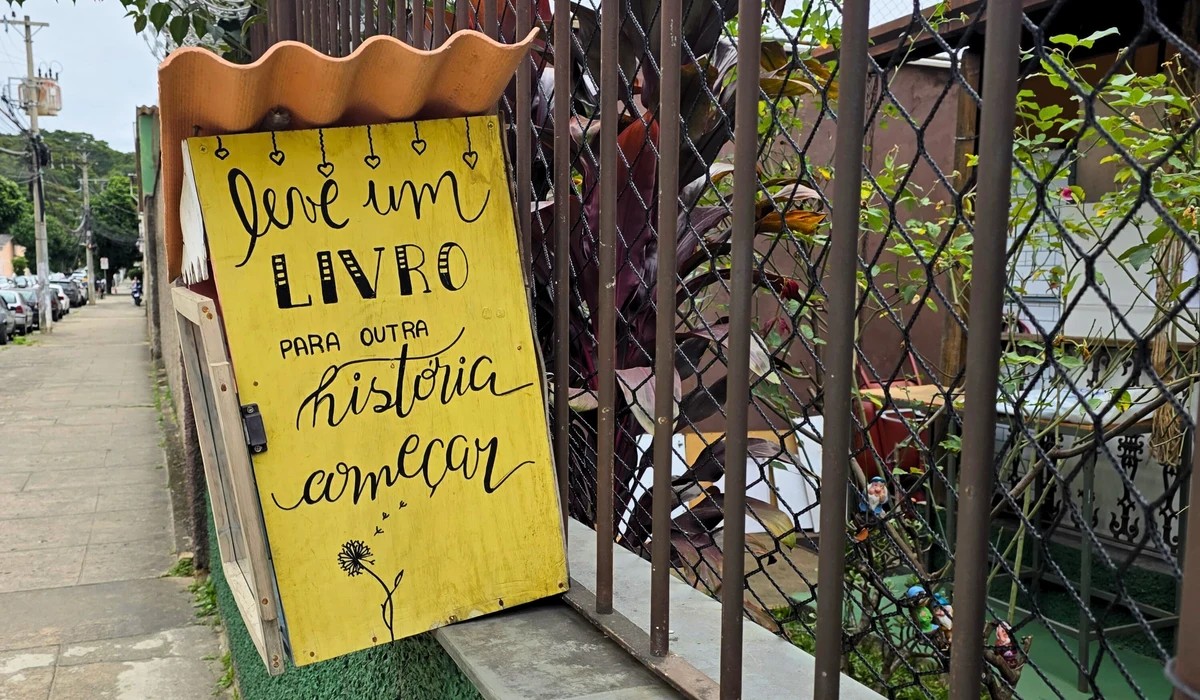 leve um
LIVRO
PARA OUTRA
história
começar